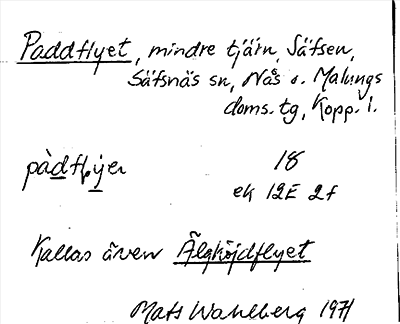 Paddflyet, mindre tjärn, Säfsen,
Säfsnäs sn, Nås o. Malungs
doms. tg, Kopp. l.
pàdflyer
18
ek 12E 2f
Kallas även Älghöjdflyet
Mats Wahlberg 1971